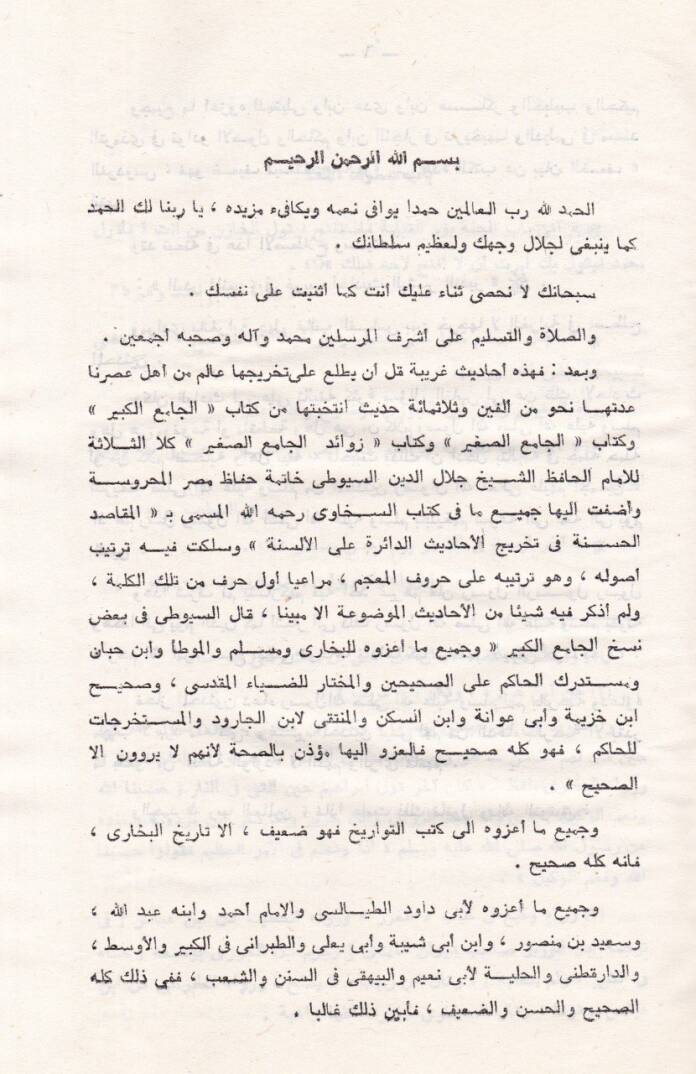 بسم الله الرحمن الرحيم
الحمد لله رب العالمين حمدا يوافى نعمه ويكافىء مزيده ، يا ربنا لك الحمد
كما ينبغى لجلال وجهك ولعظيم سلطانك .
سبحانك لا نحصى ثناء عليك أنت كما أثنيت على نفسك .
والصلاة والتسليم على أشرف المرسلين محمد وآله وصحبه أجمعين .
وبعد : فهذه أحاديث غريبة قل أن يطلع على تخريجها عالم من أهل عصرنا
عدتها نحو من ألفين وثلاثمائة حديث انتخبتها من كتاب « الجامع الكبير »
وكتاب « الجامع الصغير » وكتاب « زوائد الجامع الصغير » كلا الثلاثة
للامام الحافظ الشيخ جلال الدين السيوطى خاتمة حفاظ مصر المحروسة
وأضفت اليها جميع ما فى كتاب السخاوى رحمه الله المسمى بـ « المقاصد
الحسنة فى تخريج الأحاديث الدائرة على الألسنة » وسلكت فيه ترتيب
أصوله ، وهو ترتيبه على حروف المعجم ، مراعيا أول حرف من تلك الكلمة ،
ولم أذكر فيه شيئا من الأحاديث الموضوعة الا مبينا ، قال السيوطى فى بعض
نسخ الجامع الكبير « وجميع ما أعزوه للبخارى ومسلم والموطأ وابن حبان
ومستدرك الحاكم على الصحيحين والمختار للضياء المقدسى ، وصحيح
ابن خزيمة وأبى عوانة وابن السكن والمنتقى لابن الجارود والمستخرجات
للحاكم ، فهو كله صحيح فالعزو اليها مؤذن بالصحة لأنهم لا يروون الا
الصحيح » .
وجميع ما أعزوه الى كتب التواريخ فهو ضعيف ، ألا تاريخ البخارى ،
فانه كله صحيح .
وجميع ما أعزوه لأبى داود الطيالسى والامام أحمد وابنه عبد الله ،
وسعيد بن منصور ، وابن أبى شيبة وأبى يعلى والطبرانى فى الكبير والأوسط ،
والدارقطنى والحلية لأبى نعيم والبيهقى فى السنن والشعب ، ففى ذلك كله
الصحيح والحسن والضعيف ، فأبين ذلك غالبا .